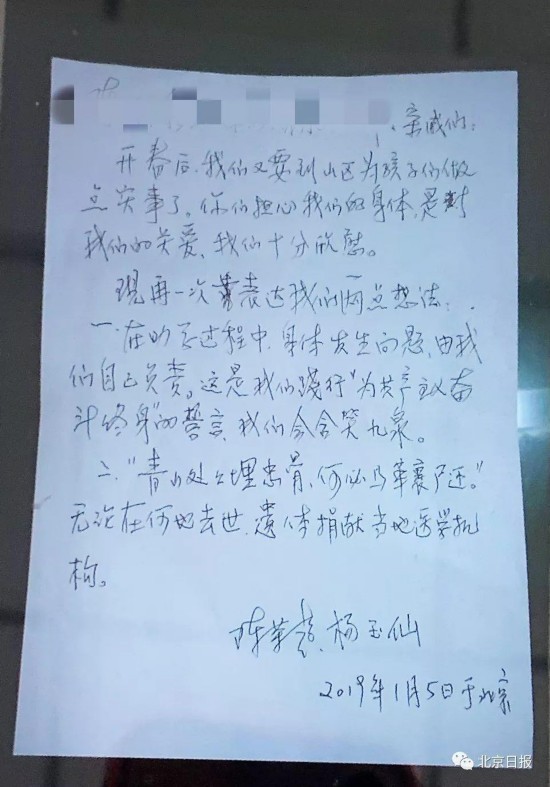 亲戚们:
开春后,我们又要到山区为孩子们做
点实事了。你们担心我们的身体,是对
我们的关爱,我们十分欣慰。
现再一次表达我们两点想法:
一.在助学过程中,身体发生问题,由我
们自己负责。这是我们践行“为共产主义奋
斗终身”的誓言,我们会含笑九泉。
二.“青山处处埋忠骨,何必马革裹尸还。”
无论在何地去世,遗体捐献当地医学机
构。
杨玉仙
2019年1月5日于北京
北京日报